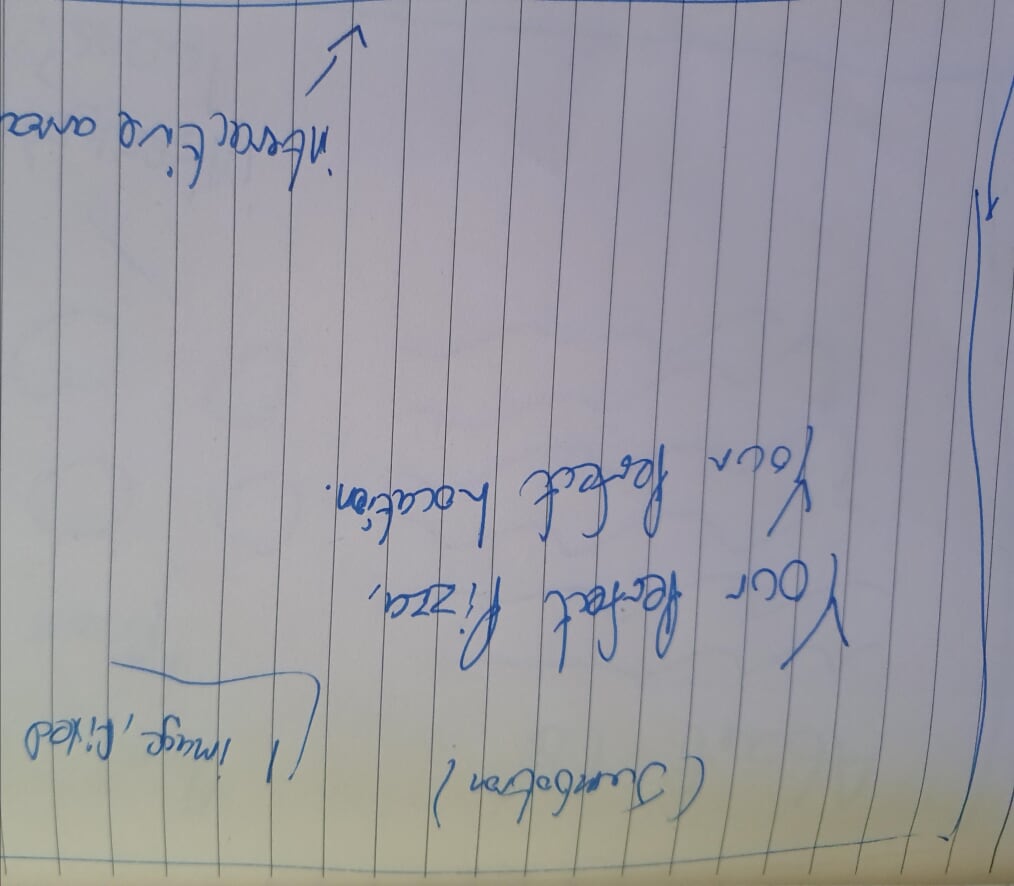 (Jumbotron)
1 image, fixed
Your Perfect Pizza,
Your Perfect Location.
interactive area